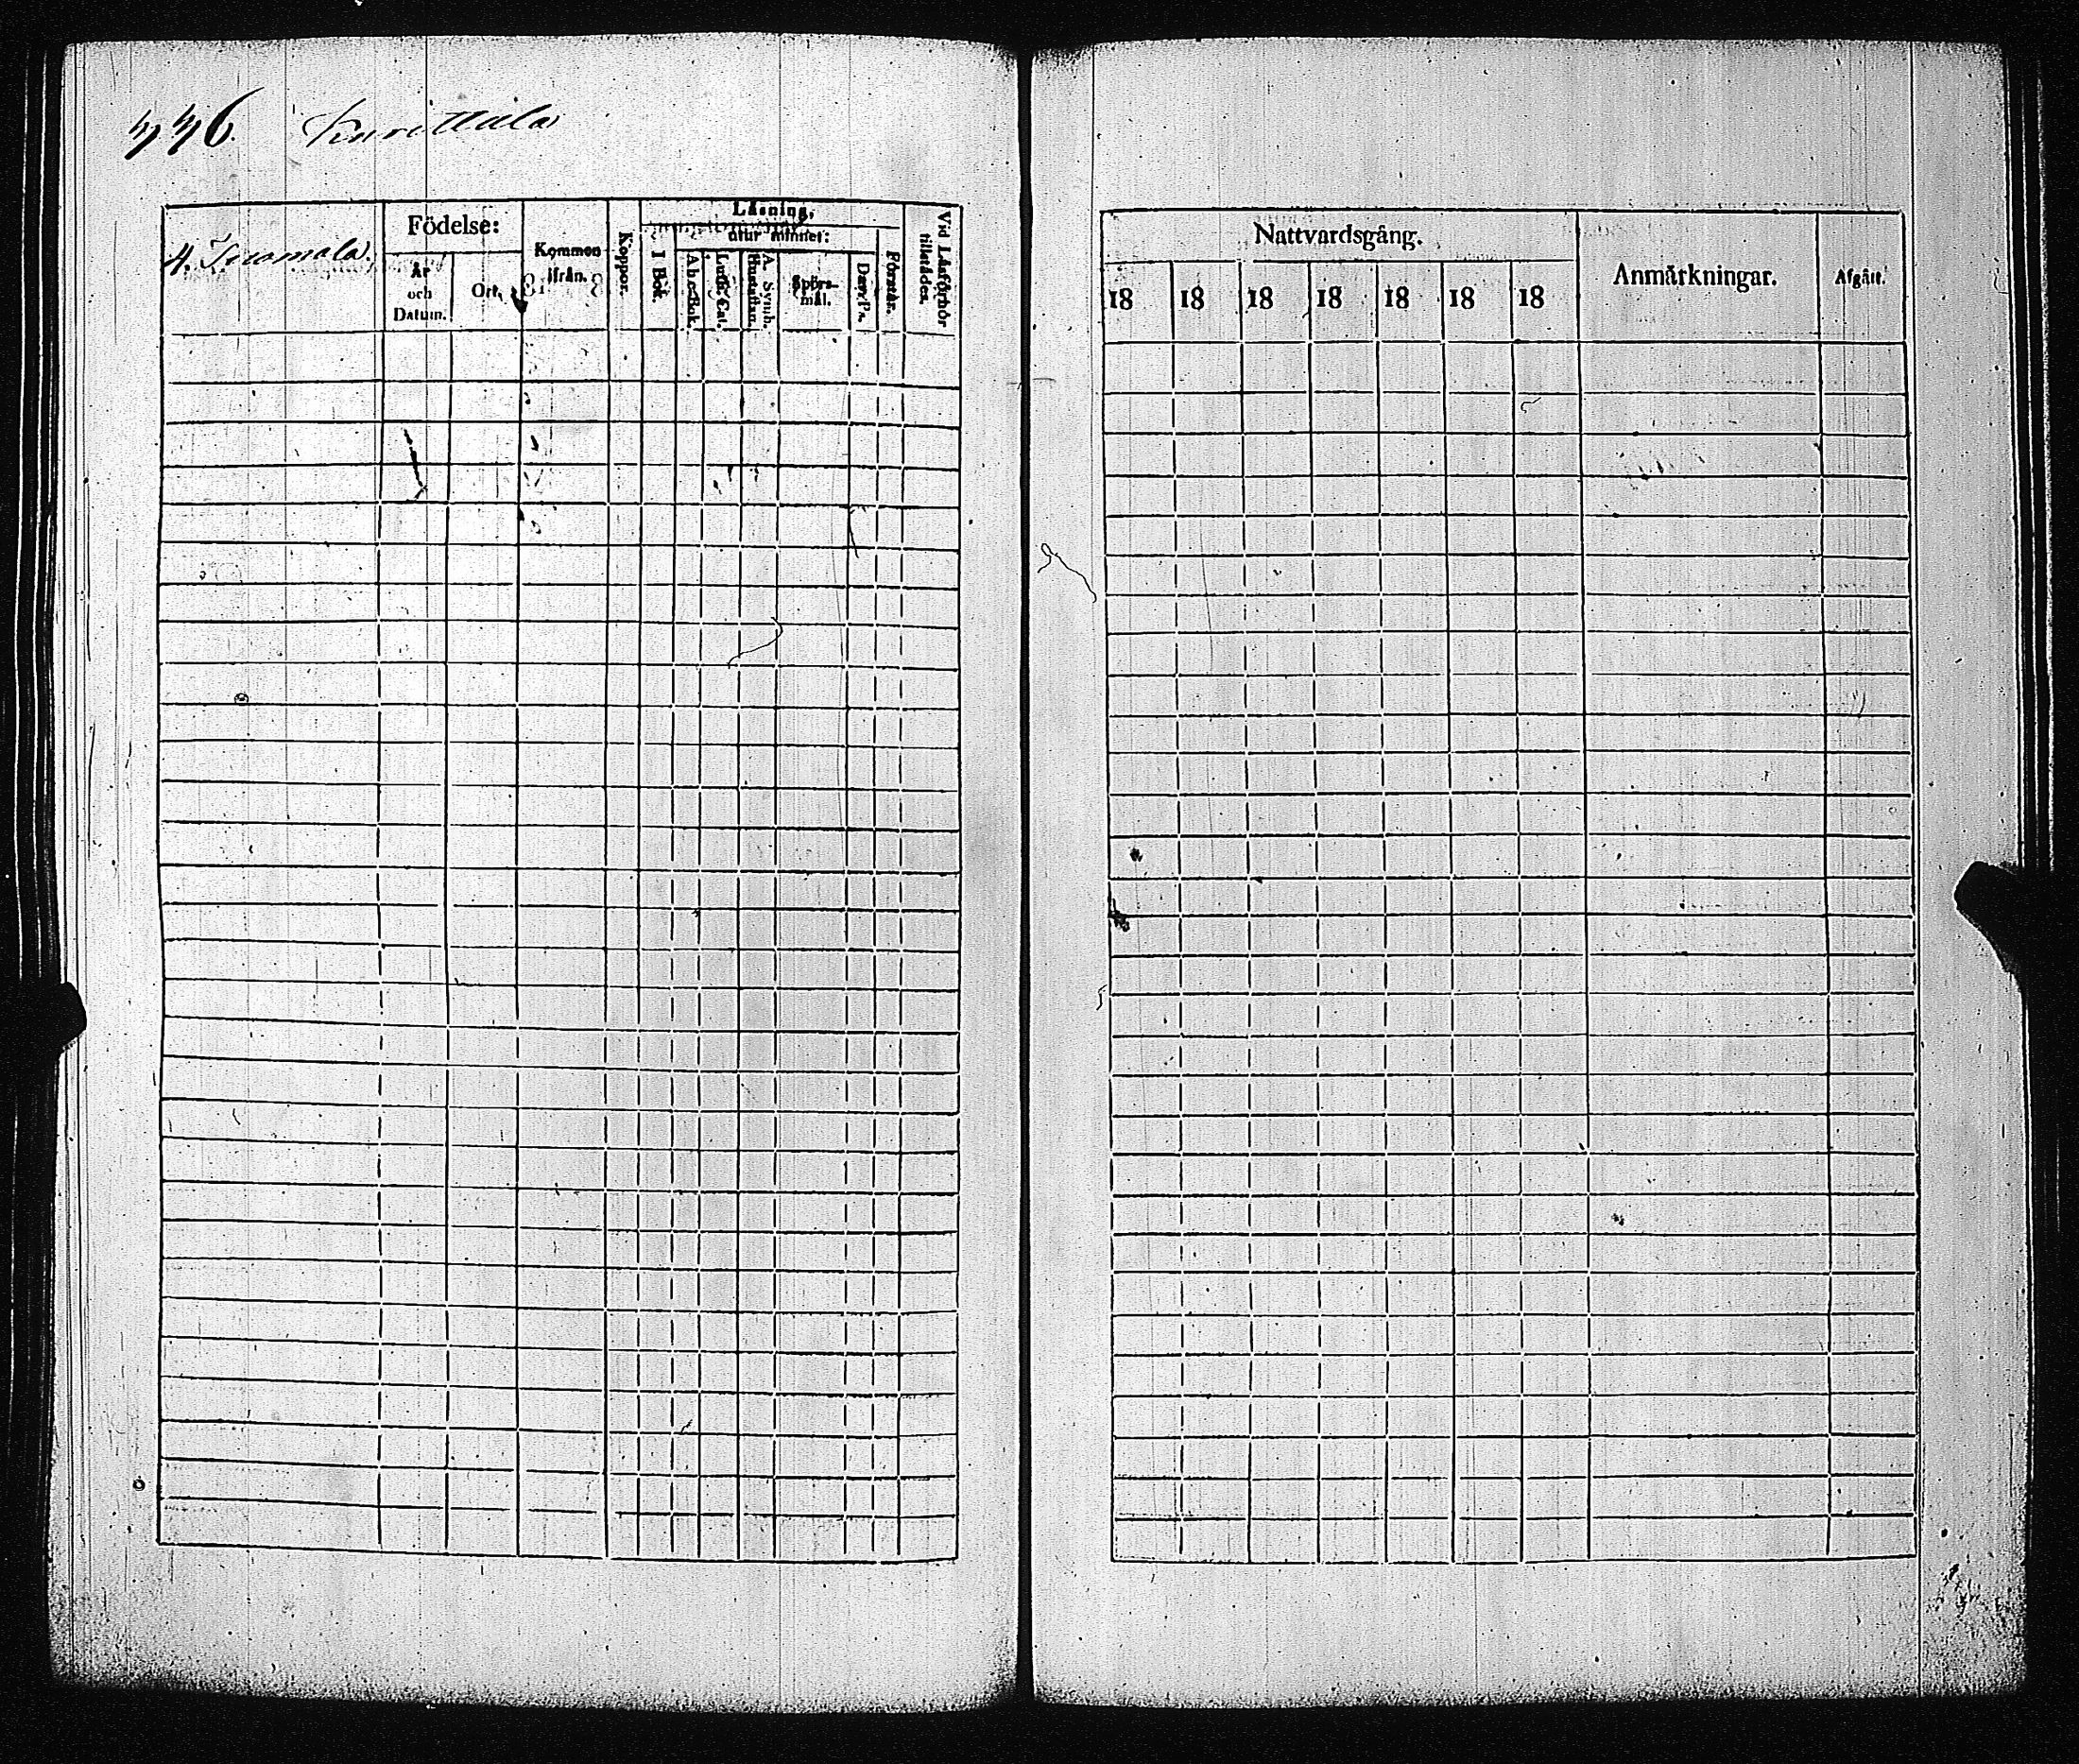 446. Kurittula
4. Tuomola.
Födelse:
År
och
Datum.
Ort.
Kommen
ifrån.
Koppor.
Läsning,
utur minnet:
I Bok.
A b c-Bok.
Luth. Cat.
Hustaflan.
A. Symb.
Spörs-
mål.
Dav. Ps.
Förstår.
Vid Läsförhör
tillstädes.
Nattvardsgång.
18 18 18 18 18 18 18
Anmärkningar.
Afgått.